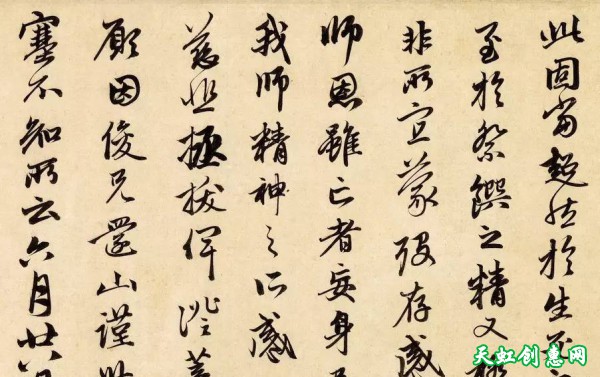 此固當超然於生死
至於祭饌之精又極
非所宜蒙歿存感
師恩雖亡者妄身
我師精神之所感
慈悲拯拔俾證菩
願因俊兄還山謹
塞不知所云六月廿八
天虹创惠网